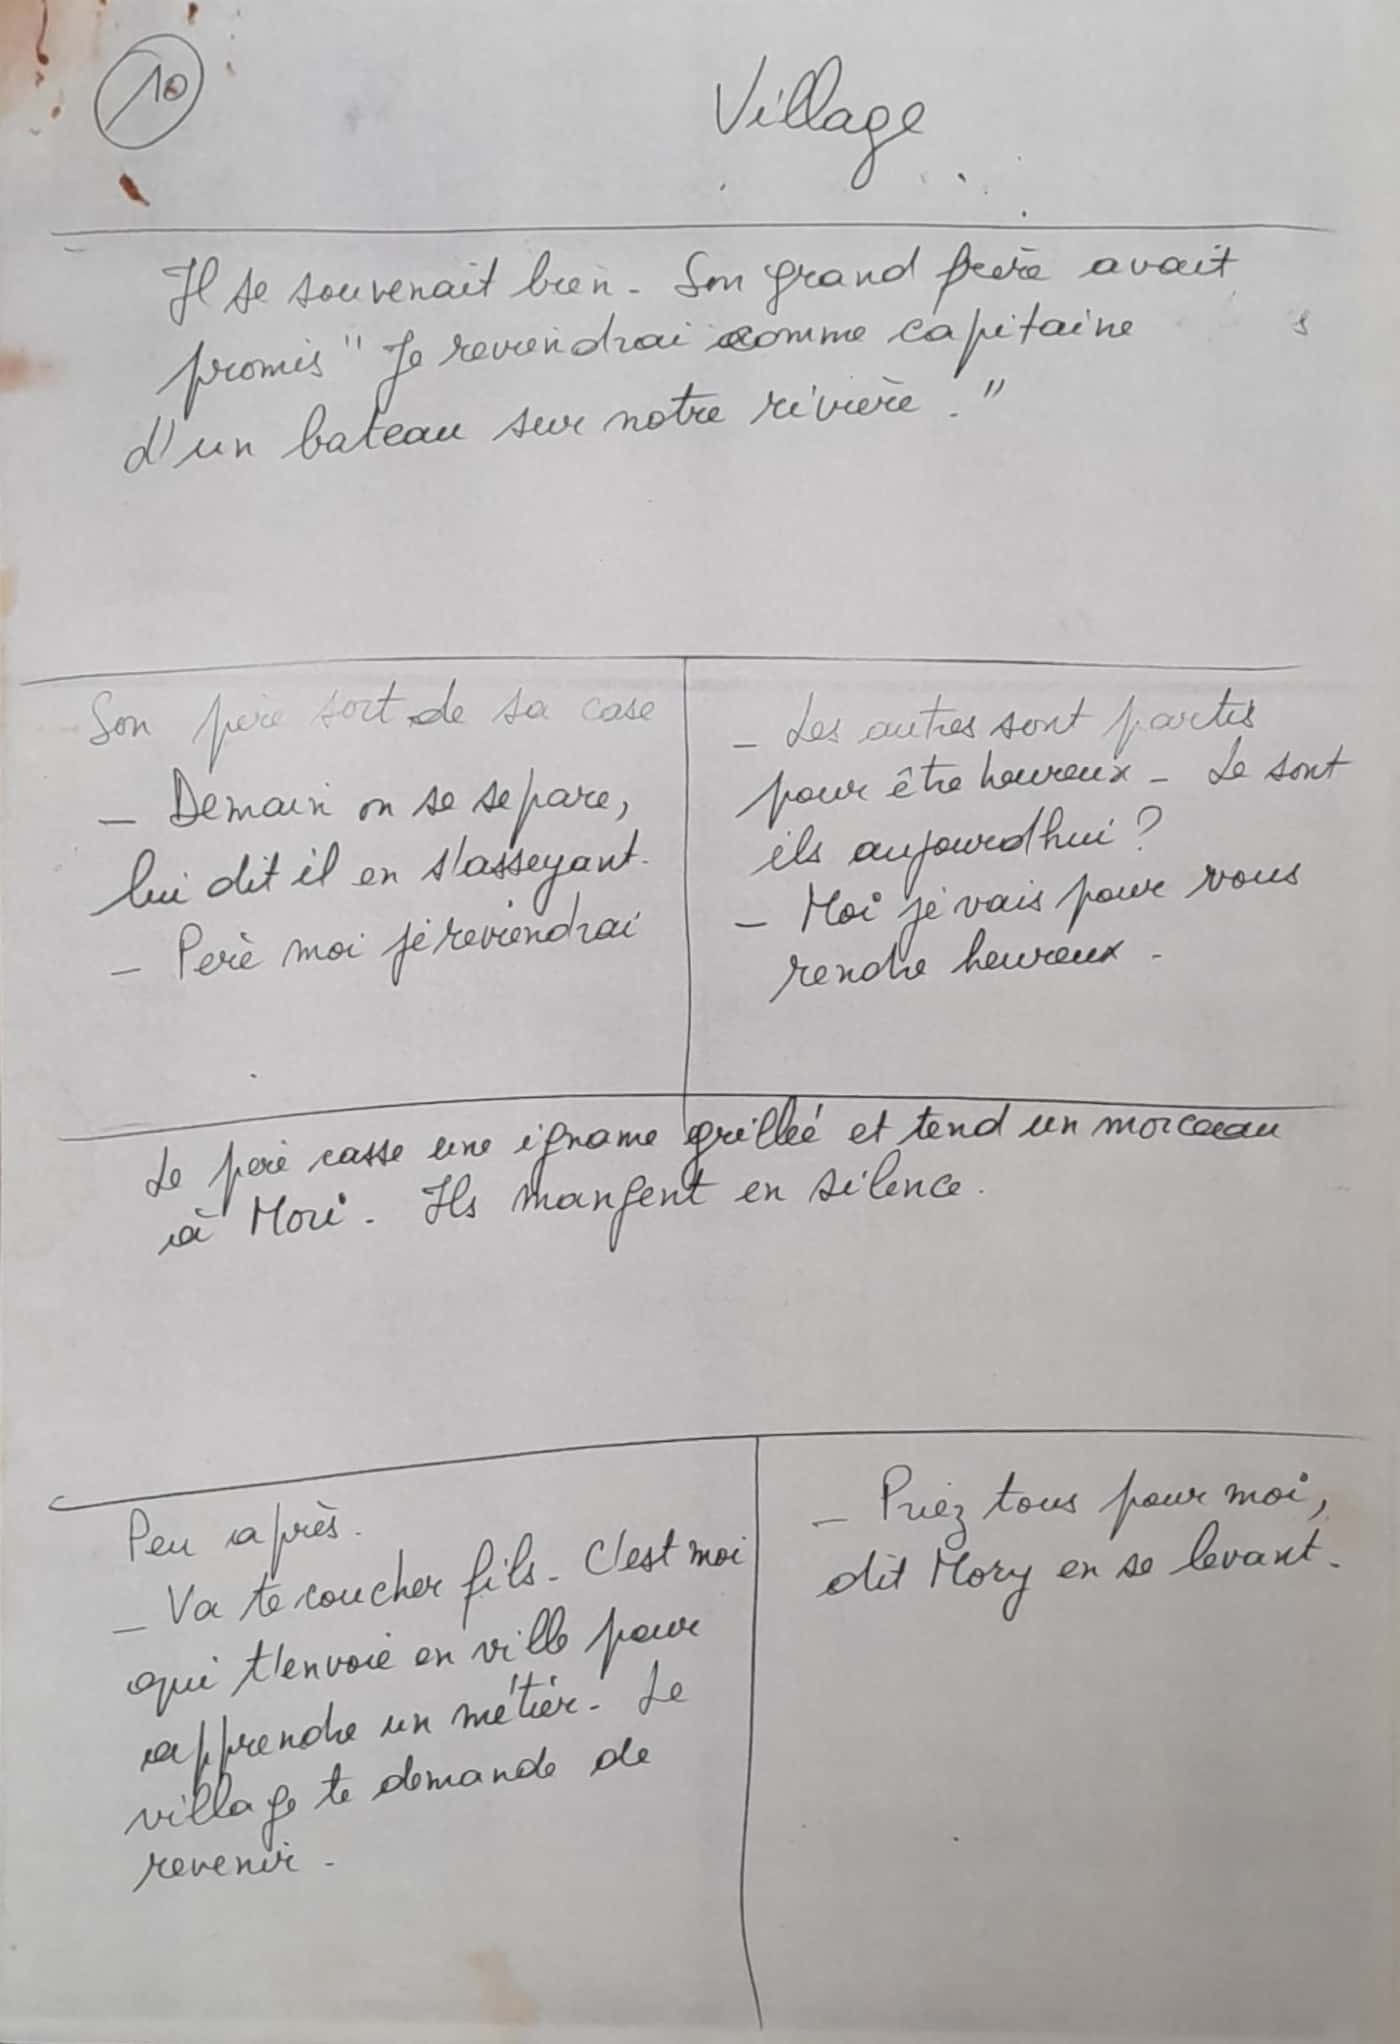 10
Village
Il se souvenait bien. Son grand frère avait
promis " Je reviendrai comme capitaine
d'un bateau sur notre rivière."
Son père sort de sa case
- Demain on se separe,
lui dit il en s'asseyant.
- Père moi je reviendrai
- Les autres sont partis
pour être heureux - Le sont
ils aujourd'hui ?
- Moi je vais pour vous
rendre heureux.
Le père casse une igname grillée et tend un morceau
à Mori. Ils mangent en silence.
Peu après.
- Va te coucher fils. C'est moi
qui t'envoie en ville pour
apprendre un métier. Le
village te demande de
revenir.
- Priez tous pour moi,
dit Mory en se levant.